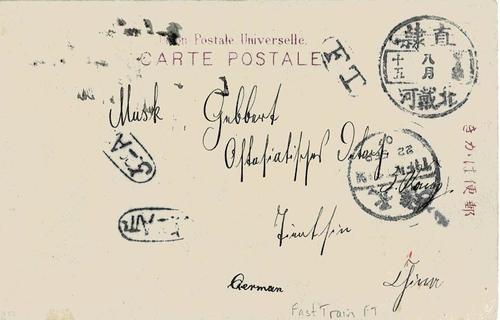 Postale Universelle.
CARTE POSTALE
F.T
直隸
八月
十五
北戴河
Musk Gebbert
Ostasiatisches
きかは便郵
Tientsin
China
German
Fast Train FT